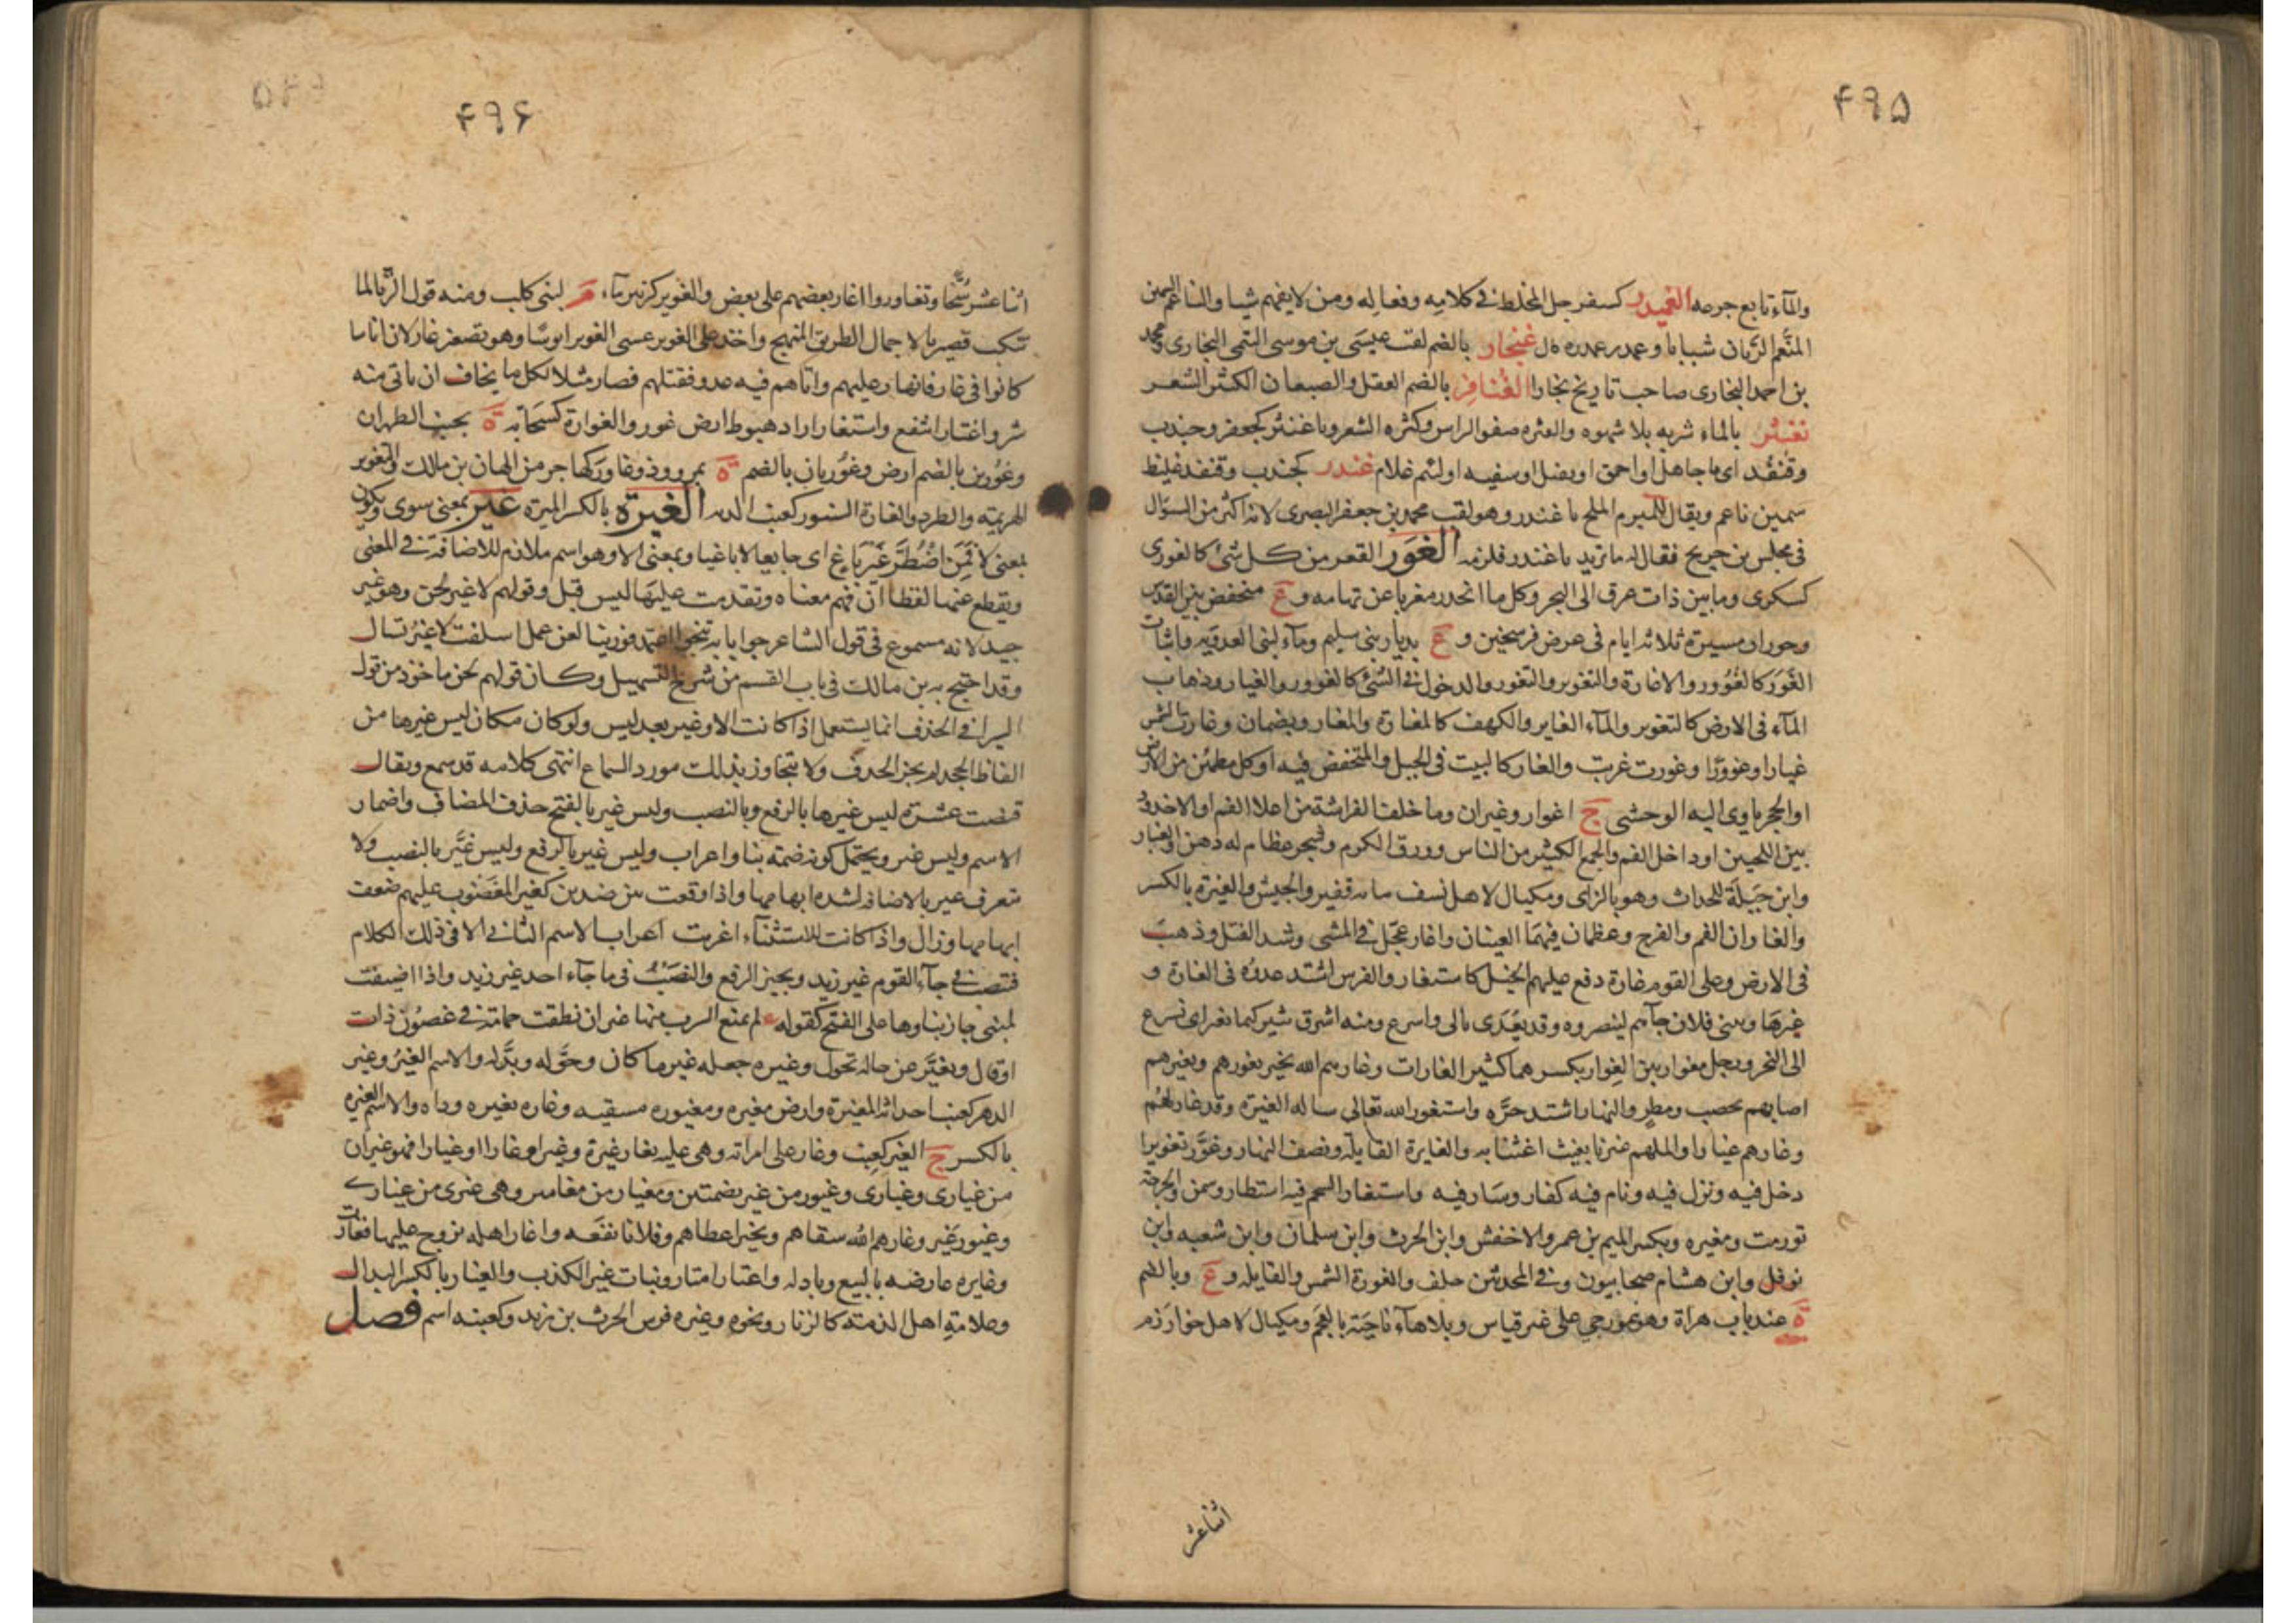 ۴۹۵
والماء تابع جرعه الغميدر كسفرجل المخلط في كلامه وفعاله ومن لا يفهم شيا والناعم السمين
المتنعم الريان شبابا وغمدر غمدرة كال غنجار بالضم لقب عيسى بن موسى التيمى البخارى ومحمد
بن احمد البخارى صاحب تاريخ بخارا الغنافر بالضم المغفل والضبعان الكثير الشعر
تغنثر بالماء شربه بلا شهوه والغنثره ضفو الراس وكثرة الشعر ويا غنثر كجعفر وجندب
وقنفذ اى يا جاهل او احمق او ثقيل او سفيه او لئيم غلام غندر كجندب وقنفذ غليظ
سمين ناعم ويقال للمبرم الملح يا غندر وهو لقب محمد بن جعفر البصرى لانه اكثر من السوال
في مجلس بن جريج فقال له ما تريد يا غندر فلزمه الغور القعر من كل شئ كالغورى
كسكرى وما بين ذات عرق الى البحر وكل ما انحدر مغربا عن تهامه و ع منخفض بين القدس
وحوران مسيرة ثلاثه ايام في عرض فرسخين و ع بديار بنى سليم وماء لبنى العدويه واتيان
الغور كالغوور والاغارة والتغوير والتغور والدخول في الشئ كالغوور والغيار وذهاب
الماء في الارض كالتغوير والماء الغاير والكهف كالمغارة والمغار ويضمان وغارت الشمس
غيارا وغوورا وغورت غربت والغار كالبيت في الجبل والمنخفض فيه او كل مطمئن من الارض
او الجحر ياوى اليه الوحشى ج اغوار وغيران وما خلف الفراشة من اعلا الفم او الاخدود
بين اللحيين او داخل الفم والجمع الكثير من الناس وورق الكرم وشجر عظام له دهن والغبار
وابن جبلة المحدث وهو بالزاى ومكيال لاهل نسف مائه قفيز والجيش والغيرة بالكسر
والغاران الفم والفرج وعظمان فيهما العينان واغار عجل في المشى وشد الفتل وذهب
في الارض وعلى القوم غارة دفع عليهم الخيل كاستغار والفرس اشتد عدوه في الغارة و
غيرها وببنى فلان جآءهم لينصروه وقد يعدى بالى واسرع ومنه اشرق ثبير كيما نغير اى نسرع
الى النحر ورجل مغوار بين الغوار بكسرهما كثير الغارات وغارهم الله بخير يغورهم ويغيرهم
اصابهم بخصب ومطر والنهار اشتد حره واستغور الله تعالى ساله الغيرة وقد غار لهم
وغارهم غيارا واللهم غرنا بغيث اغثنا به والغايرة القايلة ونصف النهار وغور تغويرا
دخل فيه ونزل فيه ونام فيه كغار وسار فيه واستغار الشحم فيه استطار وسمن والجرحة
تورمت ومغيره وبكسر الميم بن عمرو الاخفش وابن الحرث وابن سلمان وابن شعبه وابن
نوفل وابن هشام صحابيون وفي المحدثين خلف والغورة الشمس والقايله و ع وبالضم
ة عند باب هراة وهو غورجى على غير قياس وبلا هآء ناحية بالعجم ومكيال لاهل خوارزم
اثناعشر
۴۹۶
اثنا عشر سخا وتغاوروا اغار بعضهم على بعض والغوير كزبير مآء م لبنى كلب ومنه قول الزبا لما
تنكب قصير بالاجمال الطريق المنهج واخذ على الغوير عسى الغوير ابوسا وهو تصغير غار لان اناسا
كانوا في غار فانهار عليهم واتاهم فيه عدو فقتلهم فصار مثلا لكل ما يخاف ان ياتى منه
شر واغتار انتفع واستغار اراد هبوط ارض غور والغوارة كسحابه ة بجنب الظهران
وغورين بالضم ارض وغوريان بالضم ة بمروروذ وغاور كهاجر من الهان بن مالك والتغوير
الهزيمه والطرد والغارة السرة وكعنب الديه الغيرة بالكسر الميرة غير بمعنى سوى وتكون
بمعنى لا فمن اضطر غير باغ اى جايعا لا باغيا وبمعنى الا وهو اسم ملازم للاضافة في المعنى
ويقطع عنها لفظا ان فهم معناه وتقدمت عليها ليس قيل وقولهم لا غير لحن وهو غير
جيد لانه مسموع في قول الشاعر جوابا به تنجو اعتمد فوربنا لعن عمل اسلفت لا غير تسال
وقد احتج به بن مالك في باب القسم من شرح التسهيل وكان قولهم لحن ماخوذ من قول
السيرافي الحذف انما يستعمل اذا كانت الا وغير بعد ليس ولو كان مكان ليس غيرها من
الفاظ الجحد لم يجز الحذف ولا يتجاوز بذلك مورد السماع انتهى كلامه قد سمع ويقال
قبضت عشرة ليس غيرها بالرفع وبالنصب وليس غير بالفتح حذف المضاف واضمار
الاسم وليس غير ويحتمل كونه ضمة بنا واعراب وليس غير بالرفع وليس غير بالنصب ولا
تتعرف غير بالاضافه لشده ابهامها واذا وقعت بين ضدين كغير المغضوب عليهم ضعف
ابهامها وزال واذا كانت للاستثنآء اعربت اعراب الاسم الثاني الا في ذلك الكلام
فتنصب في جآء القوم غير زيد ويجيز الرفع والنصب في ما جآء احد غير زيد واذا اضيفت
لمبنى جاز بناوها على الفتح كقوله لم يمنع الشرب منها غير ان نطقت حمامة في غصون ذات
اوقال وتغير عن حاله تحول وغيره جعله غير ما كان وحوله وبدله والاسم الغير وغير
الدهر كعنب احداثه المغيرة وارض مغيره ومغيوره مسقيه وغاره يغيره وداه والاسم الغيره
بالكسر ج الغير كعنب وغار على امراته وهى عليه يغار غيرة وغيرا وغارا وغيارا فهو غيران
من غيارى وغيارى وغيور من غير بضمتين ومغيار من مغايير وهى غيرى من غيارى
وغيور غير وغارهم الله سقاهم وبخير اعطاهم وفلانا نفعه واغار اهله تزوج عليها فغارت
وغايره عارضه بالبيع وبادله واغتار امتار وبنات غير الكذب والغيار بالكسر البدال
وعلامة اهل الذمة كالزنار ونحوه وغيره فرس الحرث بن يزيد وكعنبه اسم فصل